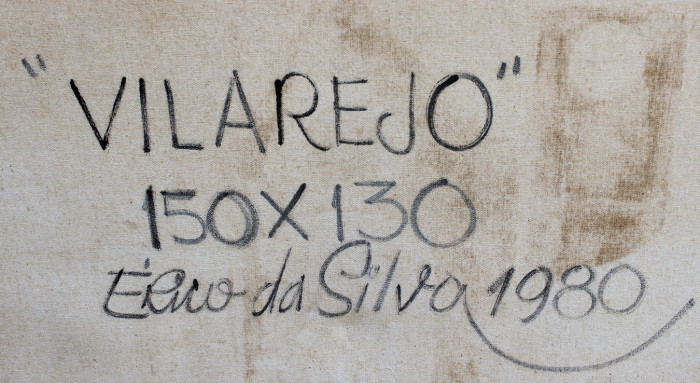 "VILAREJO"
150X130
Érico da Silva 1980